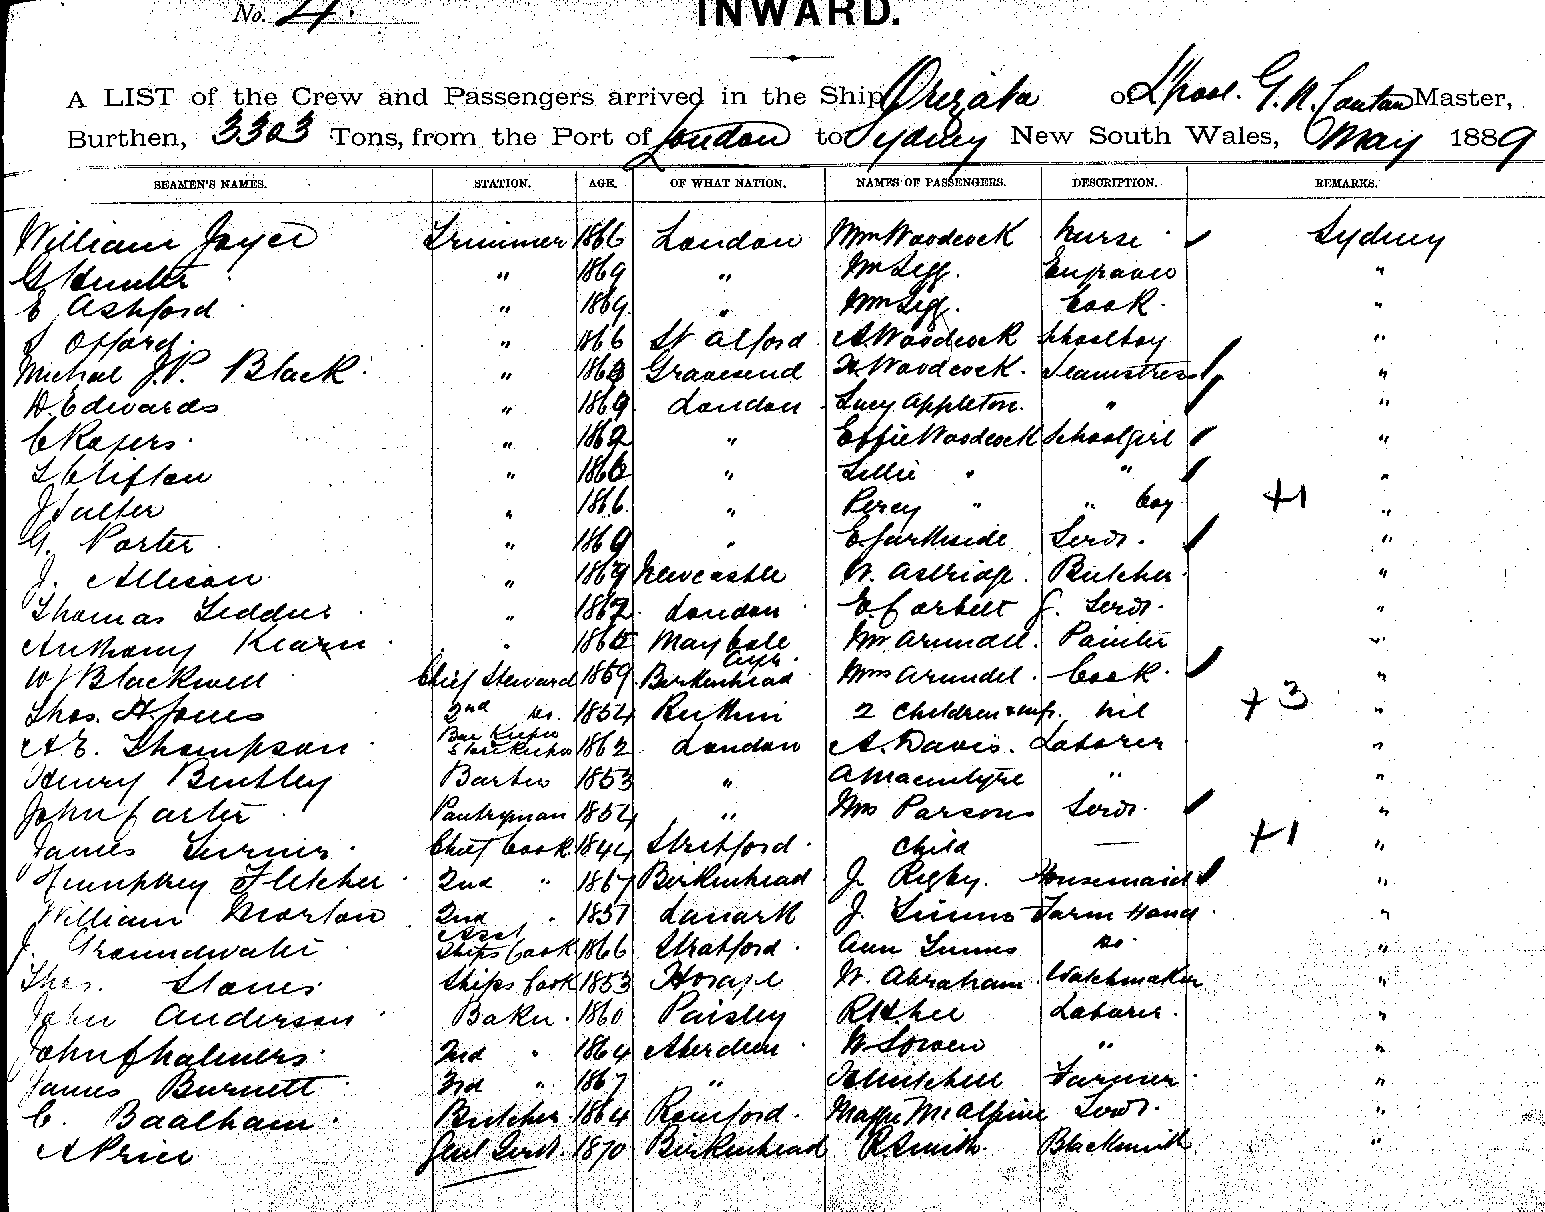 No. 4.
INWARD.
A LIST of the Crew and Passengers arrived in the Ship Orizaba of L'pool. G. N. Conlan Master,
Burthen, 3303 Tons, from the Port of London to Sydney New South Wales, May 1889
SEAMEN'S NAMES. STATION. AGE. OF WHAT NATION. NAMES OF PASSENGERS. DESCRIPTION. REMARKS.
William Joyce Trimmer 1866 London Mrs Woodcock Nurse Sydney
G Hunter " 1869 " Mr Legg. Engraver "
E Ashford " 1869 " Mrs Legg. Cook "
Offord " 1866 St Alford A Woodcock Schoolboy "
Michal J.P. Black " 1863 Gravesend H Woodcock. Seamstress "
D. Edwards " 1869 London Lucy Appleton. " "
C Rogers " 1862 " Effie Woodcock Schoolgirl "
S Clifton " 1866 " Lillie " " "
J Salter " 1866 " Percy " " boy +1 "
G. Porter " 1869 " E Garthside Servt. "
J. Allison " 1869 Newcastle W. Astridge. Butcher "
Thomas Geddes " 1862 London E. Corbett G. Servt. "
Anthony Kearn " 1865 Maybole Ayr. Mr Arundel. Painter "
W J Blackwell Chief Steward 1859 Birkenhead Mrs Arundel. Cook "
Thos. H. Jones 2nd do. 1854 Ruthin 2 Children & inf. nil +3 "
A E. Thompson Bar Keeper Storekeeper 1862 London A. Davis. Laborer "
Henry Bentley Barber 1853 " A Macintyre " "
John Carter Pantryman 1854 " Mrs Parsons Servt. "
James Turner Chief Cook 1844 Stratford Child — +1 "
Humphrey Fletcher 2nd " 1867 Birkenhead J. Rigby. Housemaid "
William Morton 2nd " 1857 Lanark J. Timms Farm Hand "
J. Groundwater Asst Ships Cook 1866 Stratford Ann Timms do. "
Thos. Stones Ships Cook 1853 W. Abraham Watchmaker "
John Anderson Baker 1860 Paisley Laborer "
John Chalmers 2nd " 1864 Aberdeen W Lowen " "
James Burnett 3rd " 1867 " Farmer "
C. Baalham Butcher 1864 Romford Maggie McAlpine Servt. "
A Price Genl Servt. 1870 Birkenhead R Smith. Blacksmith "